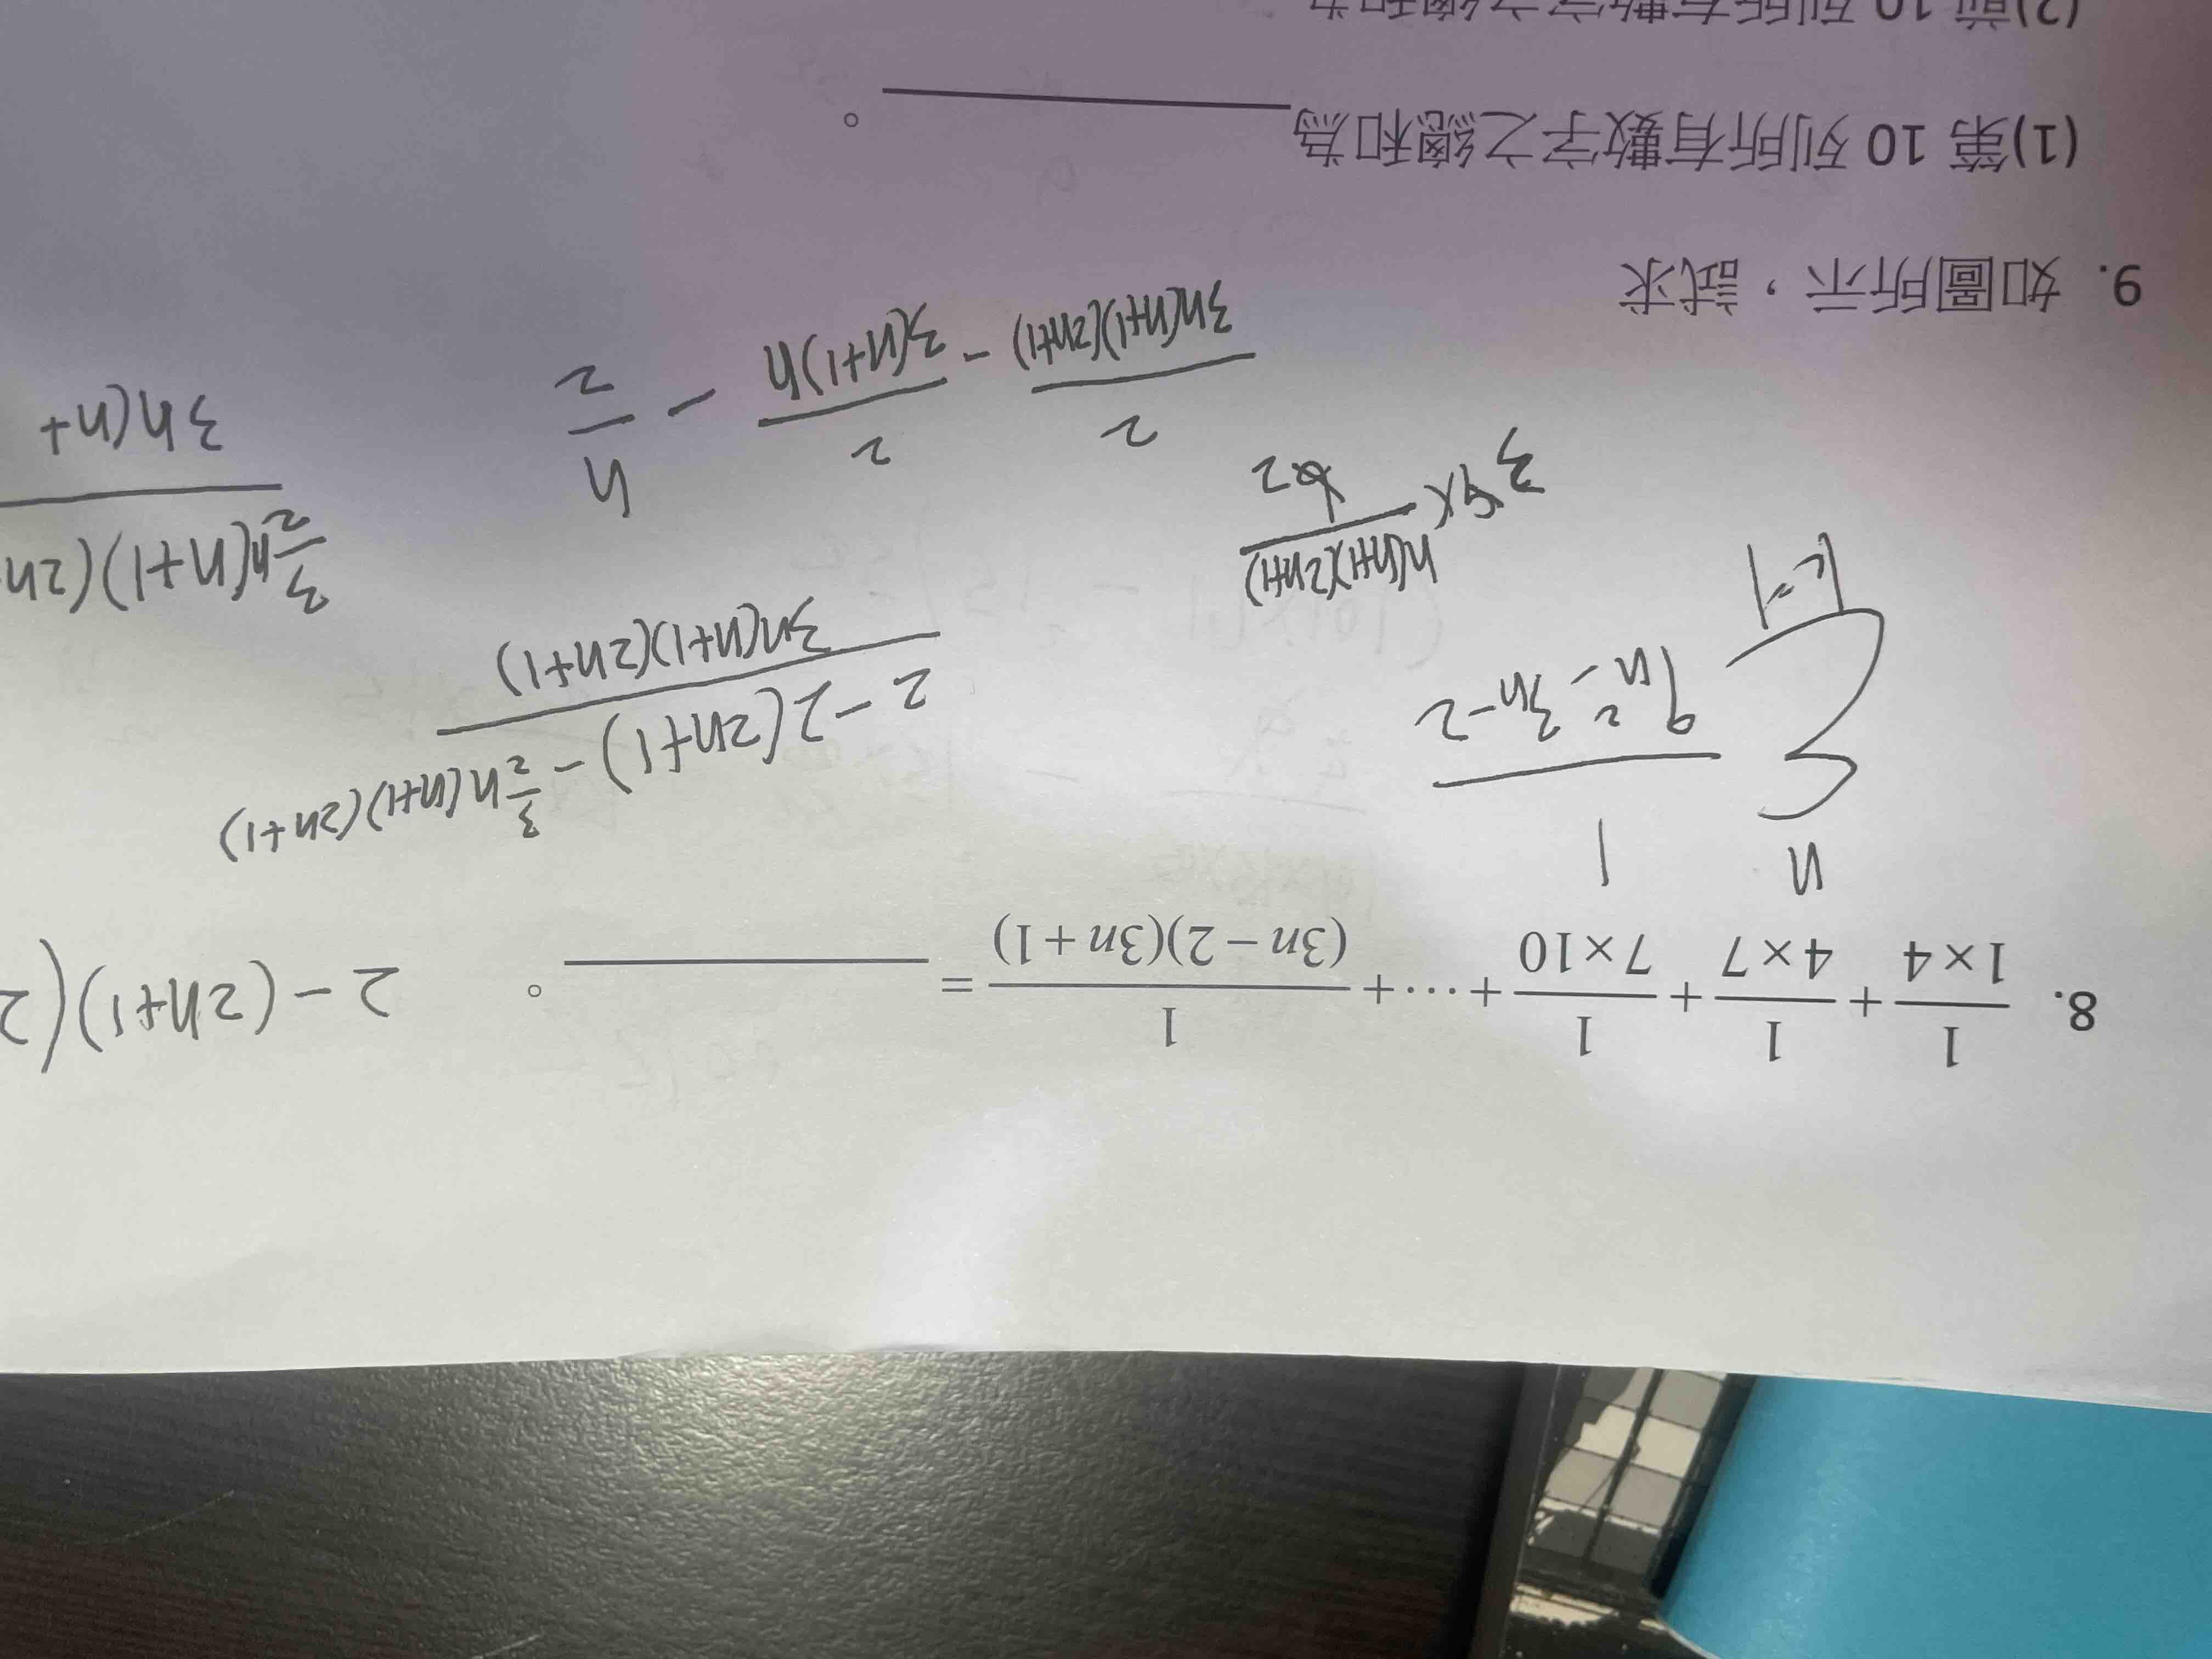 8. \frac{1}{1×4}+\frac{1}{4×7}+\frac{1}{7×10}+⋯+\frac{1}{(3n−2)(3n+1)}=________。
2-(2n+1)(2
\sum_{k=1}^{n} \frac{1}{9n^2-3n-2}
\frac{2-2(2n+1)-\frac{3}{2}n(n+1)(2n+1)}{3n(n+1)(2n+1)}
\frac{3}{2}n(n+1)(2n
3n(n+
\frac{n(n+1)(2n+1)}{2}
\frac{2}{3n(n+1)(2n+1)} - \frac{2}{3(n+1)n} - \frac{n}{2}
9. 如圖所示，試求
(1)第 10 列所有數字之總和為________。
(2)前 10 列所有數字之總和為